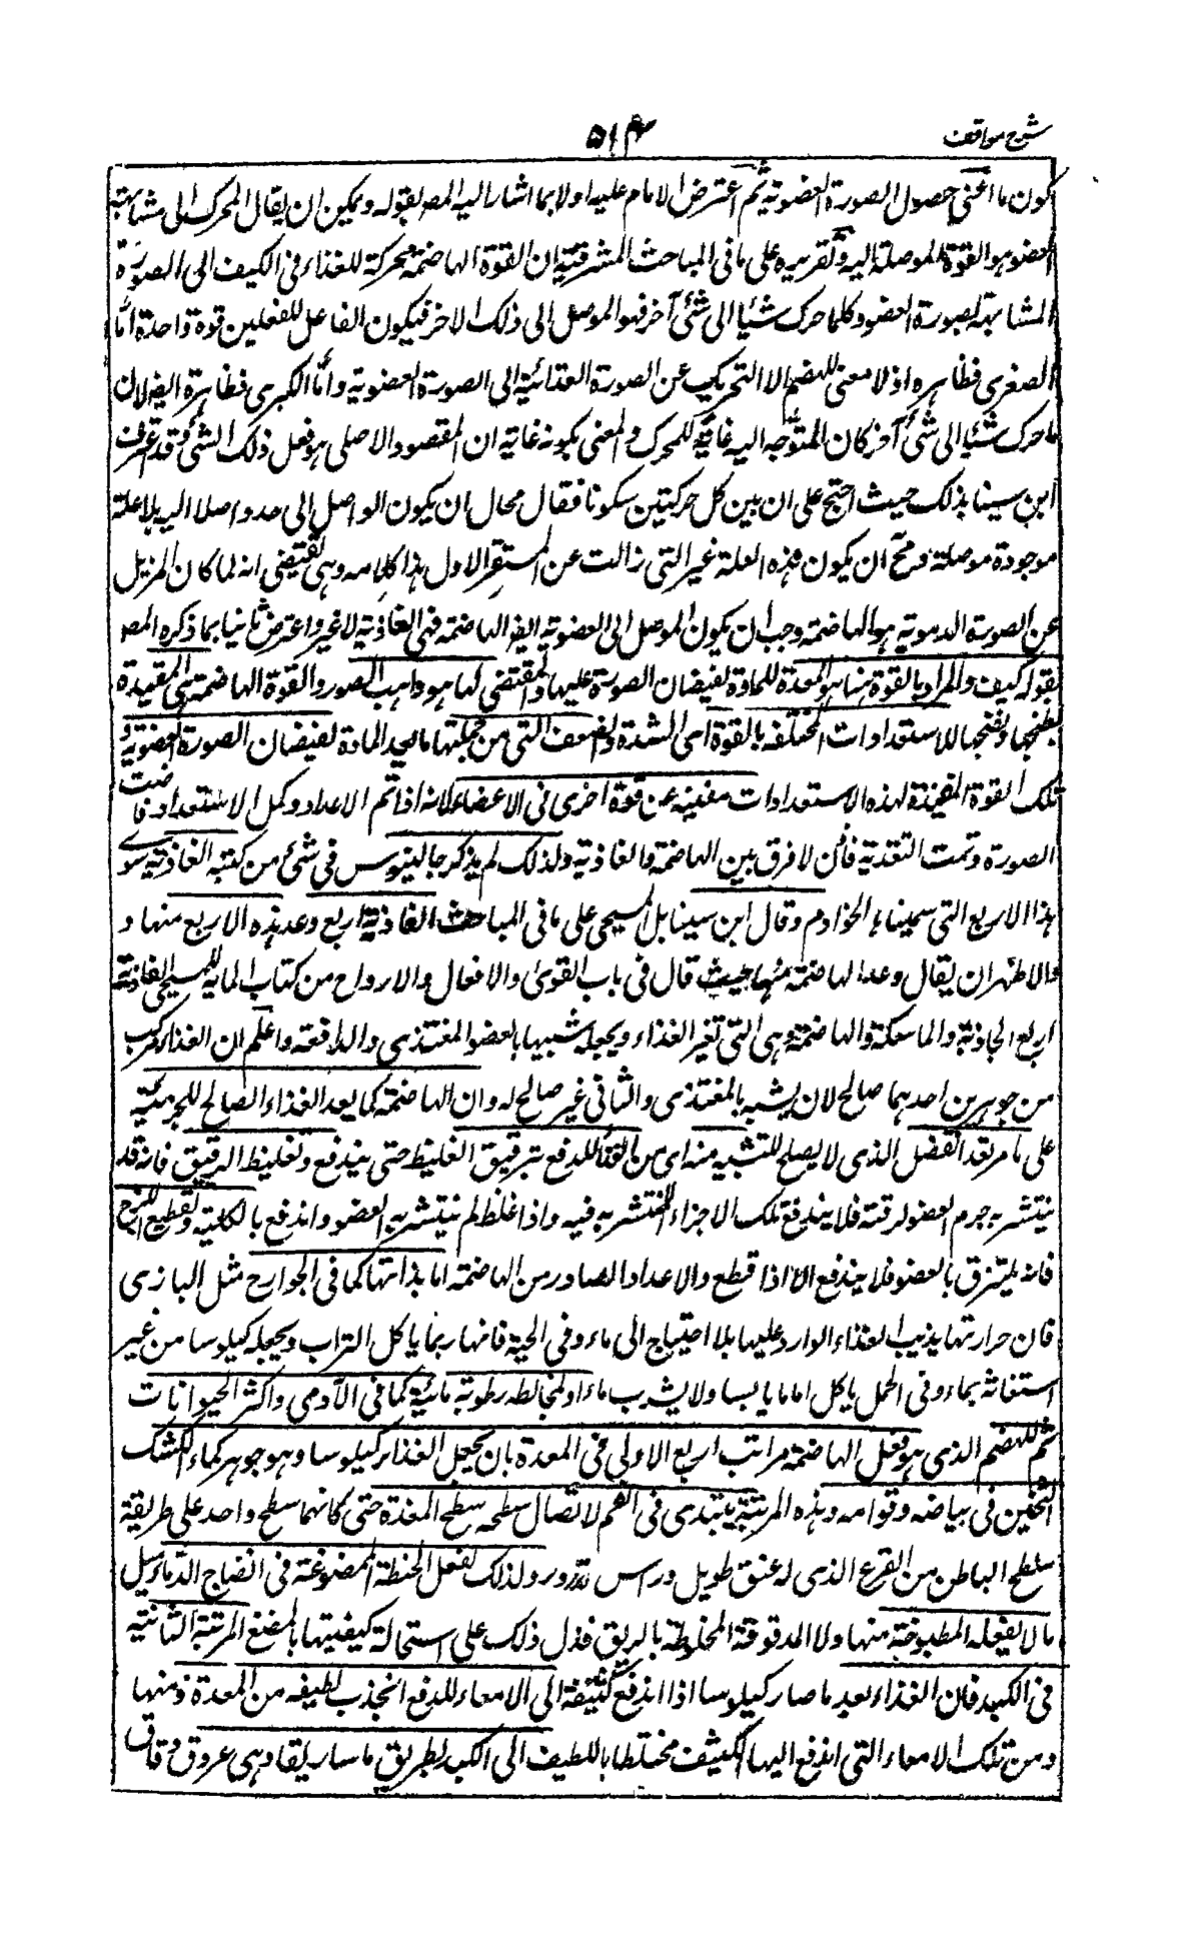 شرح مواقف
۵۱۴
كون ما اعنى حصول الصورة العضوية ثم اعترض الامام عليه اولا بما اشار اليه المص بقوله ويمكن ان يقال المحرك الى مشابهة
العضو هو القوة الموصلة اليه وتقريره على ما فى المباحث المشرقية ان القوة الهاضمة محركة للغذاء فى الكيف الى الصورة
المشابهة لصورة العضو وكلما حرك شيئا الى شئ آخر فهو الموصل الى ذلك الاخر فيكون الفاعل للفعلين قوة واحدة اما
الصغرى فظاهره اذ لا معنى للهضم الا التحريك عن الصورة الغذائية الى الصورة العضوية واما الكبرى فظاهرة ايضا لان
ما حرك شيئا الى شئ آخر كان المتوجه اليه غاية للمحرك والمعنى بكونه غاية ان المقصود الاصلى هو فعل ذلك الشئ وقد عرف
ابن سينا بذلك حيث احتج على ان بين كل حركتين سكونا فقال محال ان يكون الواصل الى حد واصلا اليه بلا علة
موجودة موصلة ومح ان يكون هذه العلة غير التى زالت عن المستقر الاول هذا كلامه وهى تقتضى انه لما كان المزيل
عن الصورة الدموية هو الهاضمة وجب ان يكون الموصل الى العضوية ايضا الهاضمة فهى الغاذية لا غير واعترض ثانيا بما ذكره المص
بقوله كيف والمراد بالقوة هنا هو المعدة للمادة لفيضان الصورة عليها والمقتضى لها هو واهب الصور والقوة الهاضمة هى المفيدة
بطبخها ونضجها للاستعدادات المختلفة بالقوة اى الشدة والضعف التى من جملتها ما يعد المادة لفيضان الصورة العضوية و
تلك القوة المفيدة لهذه الاستعدادات مغنية عن قوة اخرى فى الاعضاء لانه اذا تم الاعداد وكمل الاستعداد فاضت
الصورة وتمت التغذية فاذن لا فرق بين الهاضمة والغاذية ولذلك لم يذكر جالينوس فى شئ من كتبه الغاذية سوى
هذا الاربع التى سميناها الخوادم وقال ابن سينا بل المسيحى على ما فى المباحث الغاذية اربع وعد هذه الاربع منها و
والاظهر ان يقال وعد الهاضمة منها حيث قال فى باب القوى والافعال والارواح من كتاب المائة للمسيحى الغاذية
اربع الجاذبة والماسكة والهاضمة وهى التى تغير الغذاء ويجعله شبيها بالعضو المغتذى والدافعة واعلم ان الغذاء مركب
من جوهرين احدهما صالح لان يشبه بالمغتذى والثانى غير صالح له وان الهاضمة كما يعد الغذاء الصالح للجزئية
على ما مر تعد الفضل الذى لا يصلح للتشبيه منه اى من الغذاء للدفع بترقيق الغليظ حتى يندفع وتغليظ الرقيق فانه قد
ينتشربه جرم العضو لرقته فلا يندفع تلك الاجزاء المنتشربه فيه واذا غلظ لم ينتشربه العضو واندفع بالكلية وتقطيع اللزج
فانه يلتزق بالعضو فلا يندفع الا اذا قطع والاعداد الصادر من الهاضمة اما بذاتها كما فى الجوارح مثل البازى
فان حرارتها يذيب الغذاء الوارد عليها بلا احتياج الى ماء وفى الحية فانها ربما ياكل التراب ويجعله كيلوسا من غير
استغاثة بماء وفى الحمل ياكل اماما يابسا ولا يشرب ماء او لمخالطه رطوبة مائية كما فى الآدمى واكثر الحيوانات
ثم للهضم الذى هو فعل الهاضمة مراتب اربع الاولى فى المعدة بان يجعل الغذاء كيلوسا وهو جوهر كماء الكشك
الثخين فى بياضه وقوامه وهذه المرتبة يبتدى فى الفم لاتصال سطحه سطح المعدة حتى كانهما سطح واحد على طريقة
سطح الباطن من القرع الذى له عنق طويل وراس مدور ولذلك تفعل الحنطة الممضوغة فى انضاج الدماميل
ما لا يفعله المطبوخة منها ولا المدقوقة المخلوطة بالريق فدل ذلك على استحالة كيفيتها بالمضغ المرتبة الثانية
فى الكبد فان الغذاء بعد ما صار كيلوسا اذا اندفع كثيفة الى الامعاء للدفع انجذب لطيفه من المعدة ومنها
ومن تلك الامعاء التى اندفع اليها الكثيف مختلطا باللطيف الى الكبد بطريق ماساريقا وهى عروق دقاق